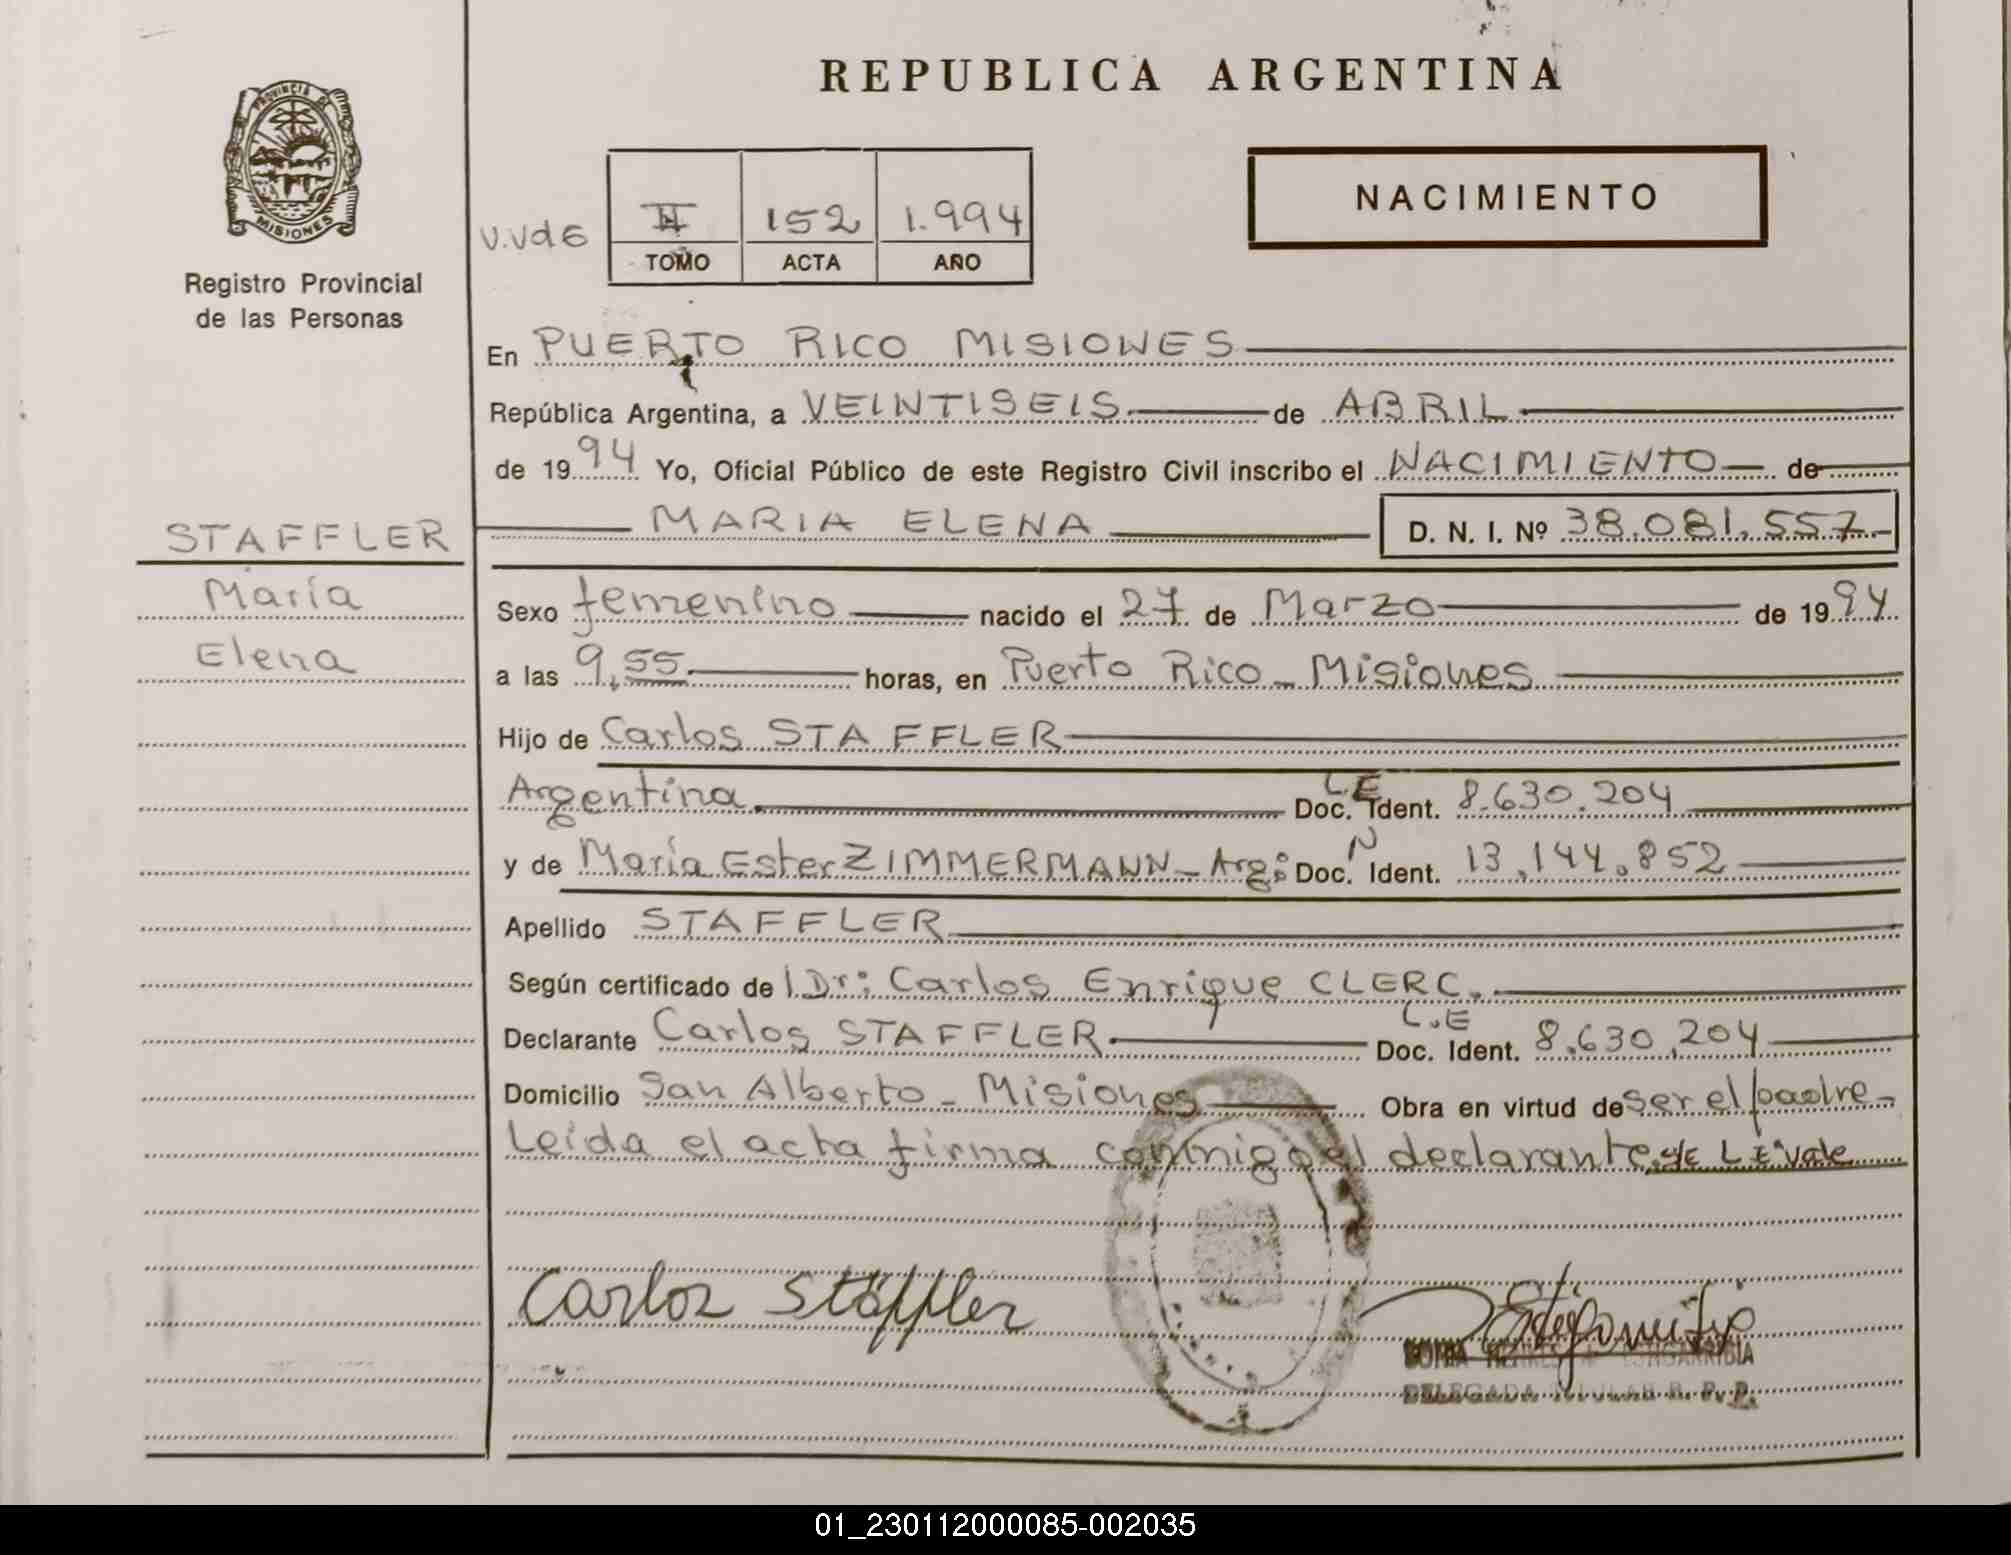 REPUBLICA ARGENTINA
PROVINCIA DE
MISIONES
Registro Provincial
de las Personas
NACIMIENTO
II 152 1.994
TOMO ACTA AÑO
En PUERTO RICO MISIONES
República Argentina, a VEINTISEIS de ABRIL
de 1994 Yo, Oficial Público de este Registro Civil inscribo el NACIMIENTO de
MARIA ELENA D. N. I. Nº 38.081.557
STAFFLER
María
Elena
Sexo femenino nacido el 27 de Marzo de 1994
a las 9,55 horas, en Puerto Rico - Misiones
Hijo de Carlos STAFFLER
Argentina. Doc. Ident. L.E 8.630.204
y de María Ester ZIMMERMANN - Arg: Doc. N Ident. 13.144.852
Apellido STAFFLER
Según certificado de Dr: Carlos Enrique CLERC.
Declarante Carlos STAFFLER. Doc. Ident. L.E 8.630.204
Domicilio San Alberto - Misiones Obra en virtud de ser el padre-
Leída el acta firma conmigo el declarante. L E vale
Carlos Stäffler
SONIA
DELEGADA TITULAR R. P. P.
01_230112000085-002035